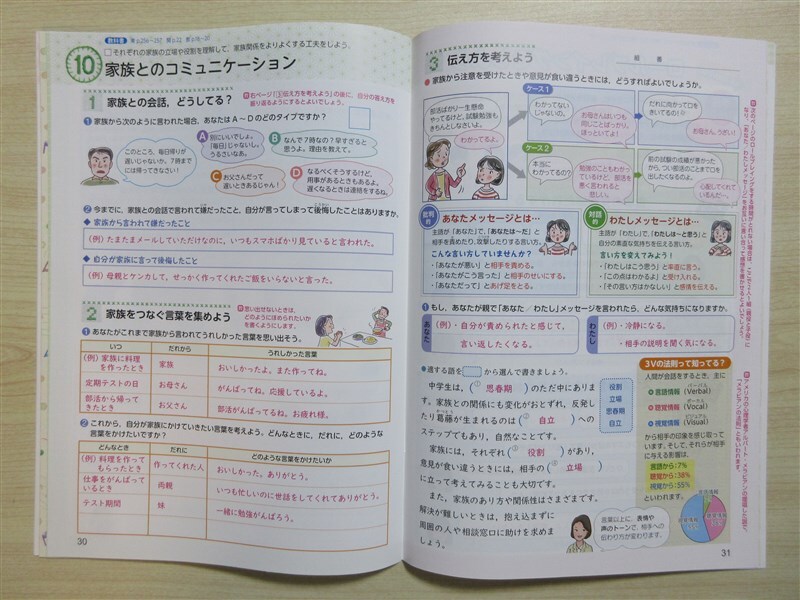 教科書
□それぞれの家族の立場や役割を理解して、家族関係をよりよくする工夫をしよう。
10
家族とのコミュニケーション
1 家族との会話、どうしてる?
右ページ「3伝え方を考えよう」の後に、自分の答え方を
振り返るようにするとよいでしょう。
❶家族から次のように言われた場合、あなたはA～Dのどのタイプですか?
このところ、毎日帰りが
遅いじゃないか。7時まで
には帰ってきなさい!
A 別にいいでしょ。
「毎日」じゃないし。
うるさいなあ。
B なんで7時なの?早すぎると
思うよ。理由を教えて。
C お父さんだって
遅いときあるじゃん!
D なるべくそうするけど、
用事があるときもあるよ。
遅くなるときは連絡をするね。
❷今までに、家族との会話で言われて嫌だったこと、自分が言ってしまって後悔したことはありますか。
◆家族から言われて嫌だったこと
(例)たまたまメールしていただけなのに、いつもスマホばかり見ていると言われた。
◆自分が家族に言って後悔したこと
(例)母親とケンカして、せっかく作ってくれたご飯をいらないと言った。
2 家族をつなぐ言葉を集めよう
思い出せないときは、
どのようにほめられたいか
を書くようにします。
❶あなたがこれまで家族から言われてうれしかった言葉を思い出そう。
いつ だれから うれしかった言葉
(例)家族に料理
を作ったとき 家族 おいしかったよ。また作ってね。
定期テストの日 お母さん がんばってね。応援しているよ。
部活から帰って
きたとき お父さん 部活がんばってるね。お疲れ様。
❷これから、自分が家族にかけていきたい言葉を考えよう。どんなときに、だれに、どのような
言葉をかけたいですか?
どんなとき だれに どのような言葉をかけたいか
(例)料理を作って
もらったとき 作ってくれた人 おいしかった。ありがとう。
仕事をがんばって
いるとき 両親 いつも忙しいのに世話をしてくれてありがとう。
テスト期間 妹 一緒に勉強がんばろう。
30
3 伝え方を考えよう
組 番
●家族から注意を受けたときや意見が食い違うときには、どうすればよいでしょうか。
部活ばかり一生懸命
やってるけど、試験勉強も
きちんとしなさいよ。
わかってるよ。
ケース1
わかってない
じゃないの。
お母さんはいつも
同じことばっかり。
ほっといてよ!
だれに向かって口を
きいてるの!
お母さん、うざい!
ケース2
本当に
わかってるの?
勉強のこともわかっ
ているけど、部活を
悪く言われると
悲しい。
前の試験の成績が悪かった
から、つい部活のことまで口を
出したくなるのよ。
心配してくれて
いるんだ…
批判的 あなたメッセージとは…
主語が「あなた」で、「あなたは～だ」と
相手を責めたり、攻撃したりする言い方。
こんな言い方していませんか?
・「あなたが悪い」と相手を責める。
・「あなたがこう言った」と相手のせいにする。
・「あなただって」とあげ足をとる。
対話的 わたしメッセージとは…
主語が「わたし」で、「わたしは～と思う」と
自分の素直な気持ちを伝える言い方。
言い方を変えてみよう!
・「わたしはこう思う」と率直に言う。
・「この点はわかるよ」と受け入れる。
・「その言い方はかなしい」と感情を伝える。
❶もし、あなたが親で「あなた/わたし」メッセージを言われたら、どんな気持ちになりますか。
あなた (例)・自分が責められたと感じて、
言い返したくなる。
わたし (例)・冷静になる。
・相手の説明を聞く気になる。
●適する語を□から選んで書きましょう。
中学生は、(① 思春期 )のただ中にありま
す。家族との関係にも変化がおとずれ、反発し
たり葛藤が生まれるのは(② 自立 )への
ステップでもあり、自然なことです。
家族には、それぞれ(③ 役割 )があり、
意見が食い違うときには、相手の(④ 立場 )
に立って考えてみることも大切です。
また、家族のあり方や関係性はさまざまです。
解決が難しいときは、抱え込まずに
周囲の人や相談窓口に助けを求めま
しょう。
役割
立場
思春期
自立
3Vの法則って知ってる?
人間が会話をするとき、主に
言語情報 (Verbal)
バーバル
聴覚情報 (Vocal)
ボーカル
視覚情報 (Visual)
ビジュアル
から相手の印象を感じ取って
います。そして、それらが相手
に与える影響は、
言語から:7%
聴覚から:38%
視覚から:55%
といわれます。
言語情報
聴覚情報
視覚情報
言葉以上に、表情や
声のトーンで、相手への
伝わり方が変わります。
31